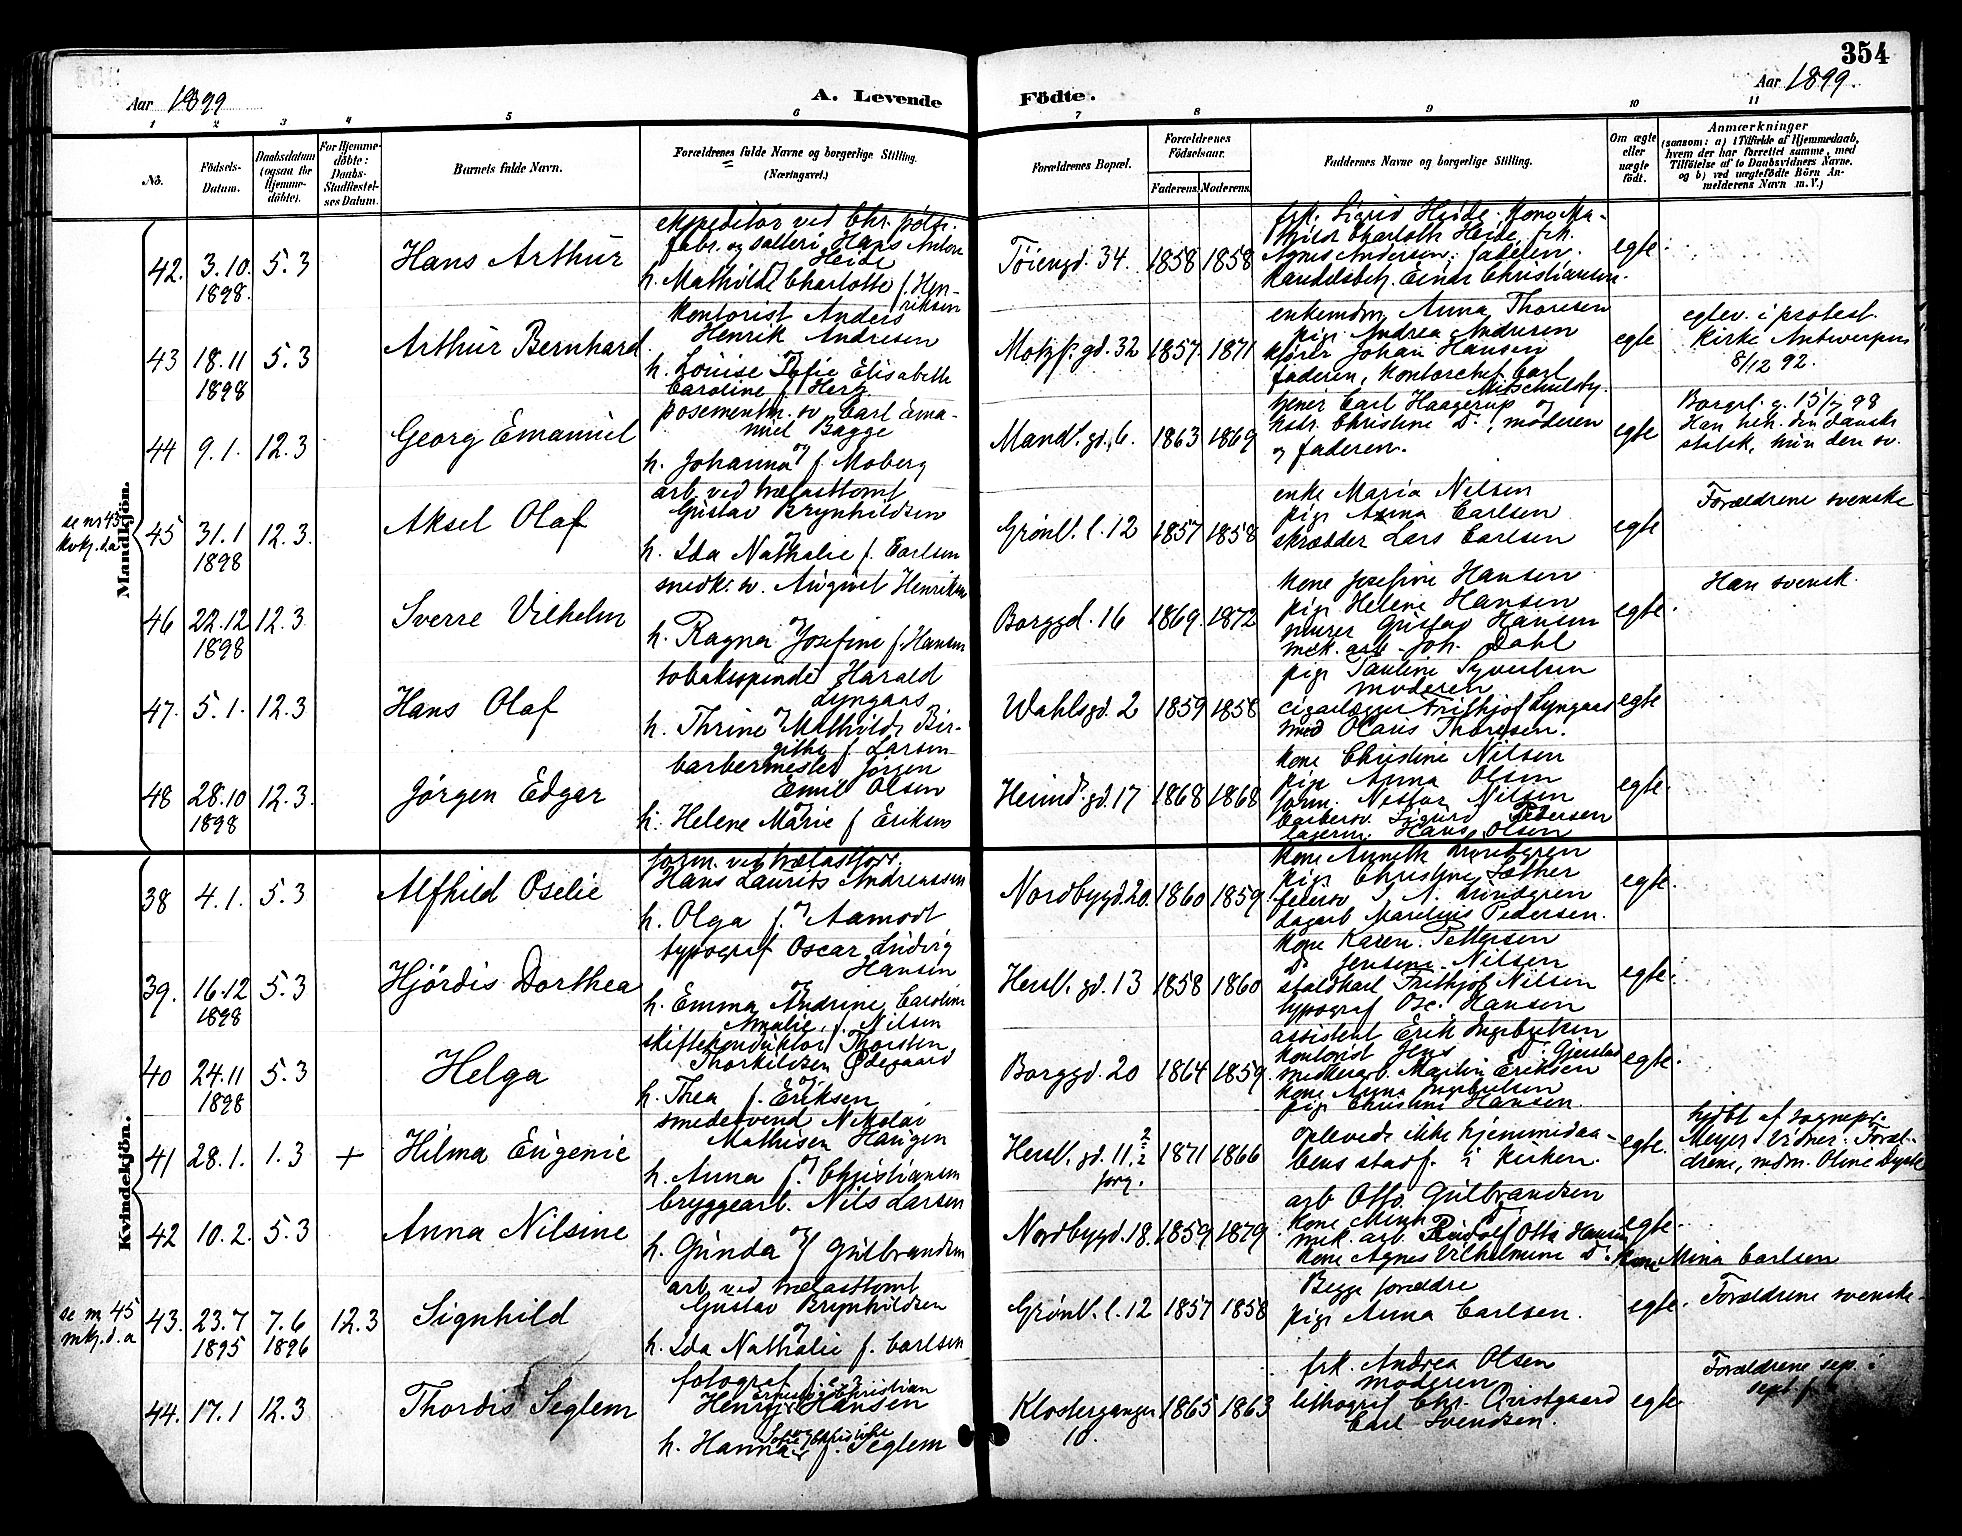 354
Aar 1899
A. Levende Födte.
Aar 1899.
1 2 3 4 5 6 7 8 9 10 11
No.
Födsels-Datum.
Daabsdatum (ogsaa for Hjemme-döbte).
For Hjemme-döbte: Daabs-Stadfæstel-ses Datum.
Barnets fulde Navn.
Forældrenes fulde Navne og borgerlige Stilling. (Næringsvei.)
Forældrenes Bopæl.
Forældrenes Födselsaar.
Faderens. Moderens.
Faddernes Navne og borgerlige Stilling.
Om ægte eller uægte födt.
Anmærkninger
(saasom: a) i Tilfælde af Hjemmedaab, hvem der har forrettet samme, med Tilföielse af to Daabsvidners Navne. og b) ved uægtefödte Börn An-melderens Navn m. V.)
Mandkjön.
42. 3.10. 1898. 5.3 Hans Arthur
expeditör ved Chr. pölse-
fabr. og salteri Hans Anton
Heide
h. Mathilde Charlotte f. Hen-
riksen
Töiengd. 34. 1858 1858
frk. Sigrid Heide. Kone Ma-
thilde Charlotte Heide, frk.
Agnes Andersen, faderen.
handelsbetj. Einar Christiansen.
egte.
43 18.11 1898 5.3 Arthur Bernhard
kontorist Anders
Henrik Andresen
h. Louise Sofie Elisabeth
Caroline f. Herz.
Motzf. gd. 32 1857. 1871
enkemdm Anna Thoresen
pige Andrea Andresen
kjörer Johan Hansen
faderen, kontorchef Carl
egte
egtev. i protest.
kirke Antwerpen
8/12 92.
44 9.1. 12.3 Georg Emanuel
posementm. sv Carl Ema-
nuel Bagge
h. Johanna f. Moberg
Mand. gd. 6. 1863 1869
tjener Carl Haagerup og
hstr. Christine Do, moderen
og faderen.
egte
Borgel. g. 15/7 98
Han beh. den danske
statsk, hun den sv.
se nr 45
kvkj. d.a
45 31.1 1898 12.3. Aksel Olaf
arb ved trælasttomt
Gustav Brynhildsen
h. Ida Nathalie f. Carlsen
Grönl. l. 12 1857 1858
enke Maria Nilsen
pige Anna Carlsen
skrædder Lars Carlsen
egte
Forældrene svenske
46 22.12 1898 12.3. Sverre Vilhelm
snedk. sv. August Henriksen
h. Ragna Josefine f. Hansen
Borggd. 16 1869. 1872
kone Josefine Hansen
pige Helene Hansen
murer Gustav Hansen
mek. arb. Joh. Dahl
egte.
Han svensk.
47. 5.1. 12.3 Hans Olaf
tobaksspinder Harald
Lyngaas
h. Thrine Mathilde Bir-
githe f. Larsen
Wahlsgd. 2 1859 1858
pige Pauline Syvertsen
moderen
cigarlægger Frithjof Lyngaas
smed Olaus Thoresen.
egte
48 28.10 1898 12.3. Jörgen Edgar
barbermester Jörgen
Emil Olsen
h. Helene Marie f Eriksen
Heimd. gd. 17 1868 1868
kone Christine Nilsen
pige Anna Olsen
form. Nestor Nilsen
barbersv. Sigurd Pedersen
lagerm. Hans Olsen
egte.
Kvindekjön.
38 4.1. 5.3 Alfhild Oselie
form. ved trælastforr.
Hans Laurits Andreassen
h. Olga f. Aamodt
Nordbygd. 20. 1860 1859
kone Annette Lundgren
pige Christine Sæther
feiersv J. A. Lundgren
dagarb Marelius Pedersen.
egte.
39. 16.12 1898 5.3 Hjördis Dorthea
typograf Oscar Ludvig
Hansen
h. Emma Andrine Caroline
Amalie f. Nilsen
Hersl. gd. 13 1858 1860
kone Karen Pettersen
Do Jensine Nilsen
staldkarl Frithjof Nilsen
typograf Osc. Hansen
egte.
40 24.11 1898 5.3 Helga
skiftekonduktör Thorsten
Thorkildsen Ødegaard
h. Thea f. Eriksen
Borggd. 20 1864 1859
assistent Erik Ingebretsen
kontorist Jens Gjerstad
snedkerarb. Martin Eriksen
kone Anna Ingebretsen
pige Christine Hansen
egte.
41 28.1. 1.3 + Hilma Eugenie
smedesvend Nikolai
Mathisen Haugen
h. Anna f. Christiansen
Hersl. gd. 11, 2/2
forg. 1871 1866
oplevede ikke hjemmedaa-
bens stadf. i kirken.
egte.
hjdbt af sognepr.
Meyer. Vidner: Foræl-
drene, mdm. Oline Dyste
42 10.2. 5.3 Anna Nilsine
bryggearb. Nils Larsen
h. Gunda f Gulbrandsen
Nordbygd. 18. 1859 1879
arb Otto Gulbrandsen
kone Minda Do
mek. arb Rudolf Otto Hansen
kone Agnes Vilhelmine Do. kone Mina Carlsen
egte.
se nr 45
mkj. d. a
43. 23.7 1895 7.6 1896 12.3 Signhild
arb ved trælasttomt
Gustav Brynhildsen
h. Ida Nathalie f. Carlsen
Grönl. l. 12 1857 1858
Begge forældre
pige Anna Carlsen.
egte.
Forældrene svenske.
44. 17.1 12.3 Thordis Seglem
fotograf
Henry Hansen
h. Hanna f. Seglem
Klostergangen
10. 1865 1863
frk. Andrea Olsen
moderen
lithograf Chr. Qvistgaard
Carl Svendsen.
egte.
Forældrene sep. i
sept.